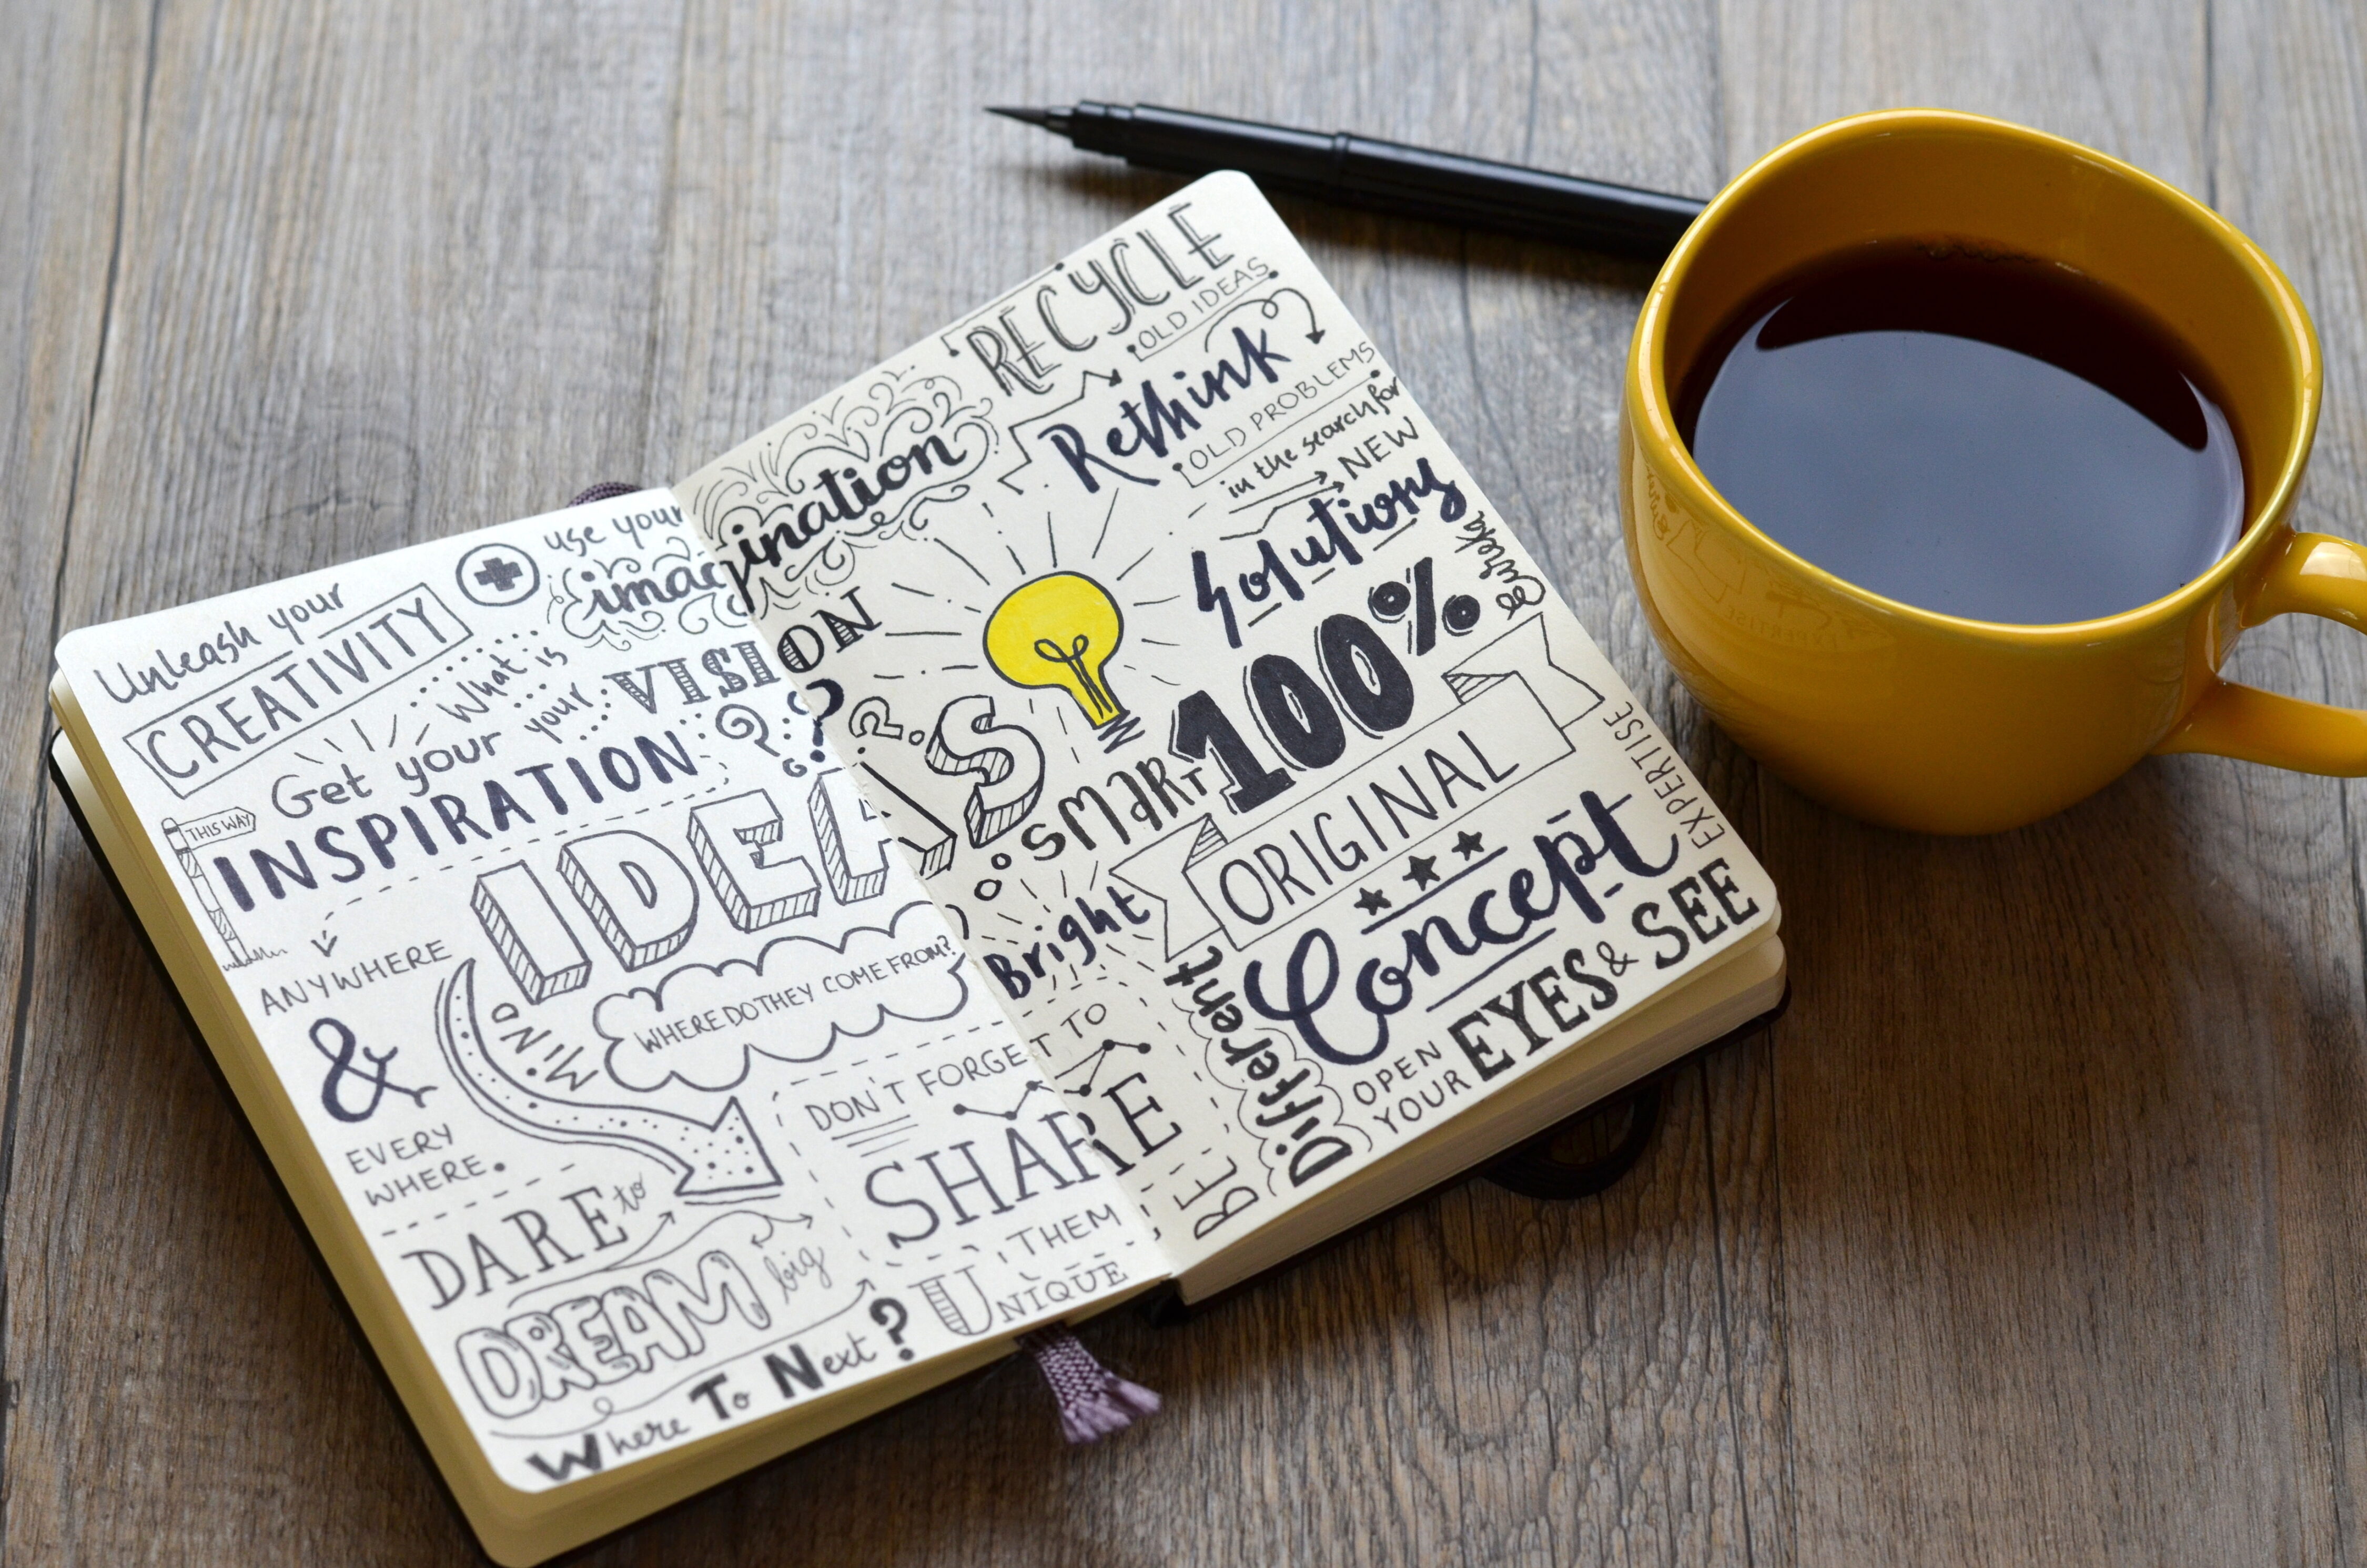 Unleash your
CREATIVITY
use your
imagination
What is
your
VISION
??
Get your
INSPIRATION
THIS WAY
ANYWHERE
&
EVERY
WHERE.
IDEAS
MiND
WHERE DO THEY COME FROM?
DON'T FORGET TO
SHARE
THEM
DARE to
DREAM big
Where To Next?
UNiQUE
RECYCLE
OLD IDEAS
Rethink
OLD PROBLEMS
in the search for
NEW
Solutions
Eureka
?
SMART
Bright
100%
ORIGINAL
Concept
EXPERTISE
BE
Different
OPEN
YOUR
EYES & SEE